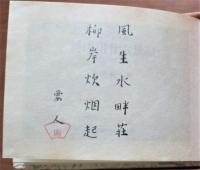 風生水畔荘
柳岸炊烟起
愛人